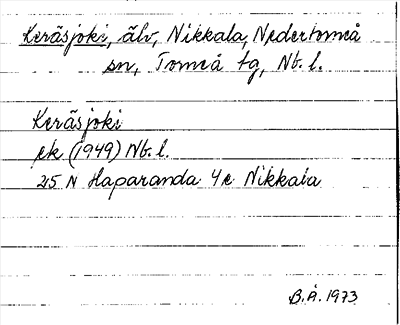 Keräsjoki, älv, Nikkala, Nedertorneå
sn, Torneå tg, Nb. l.
Keräsjoki
ek (1949) Nb. l.
25 N Haparanda 4c Nikkala
B.Å. 1973